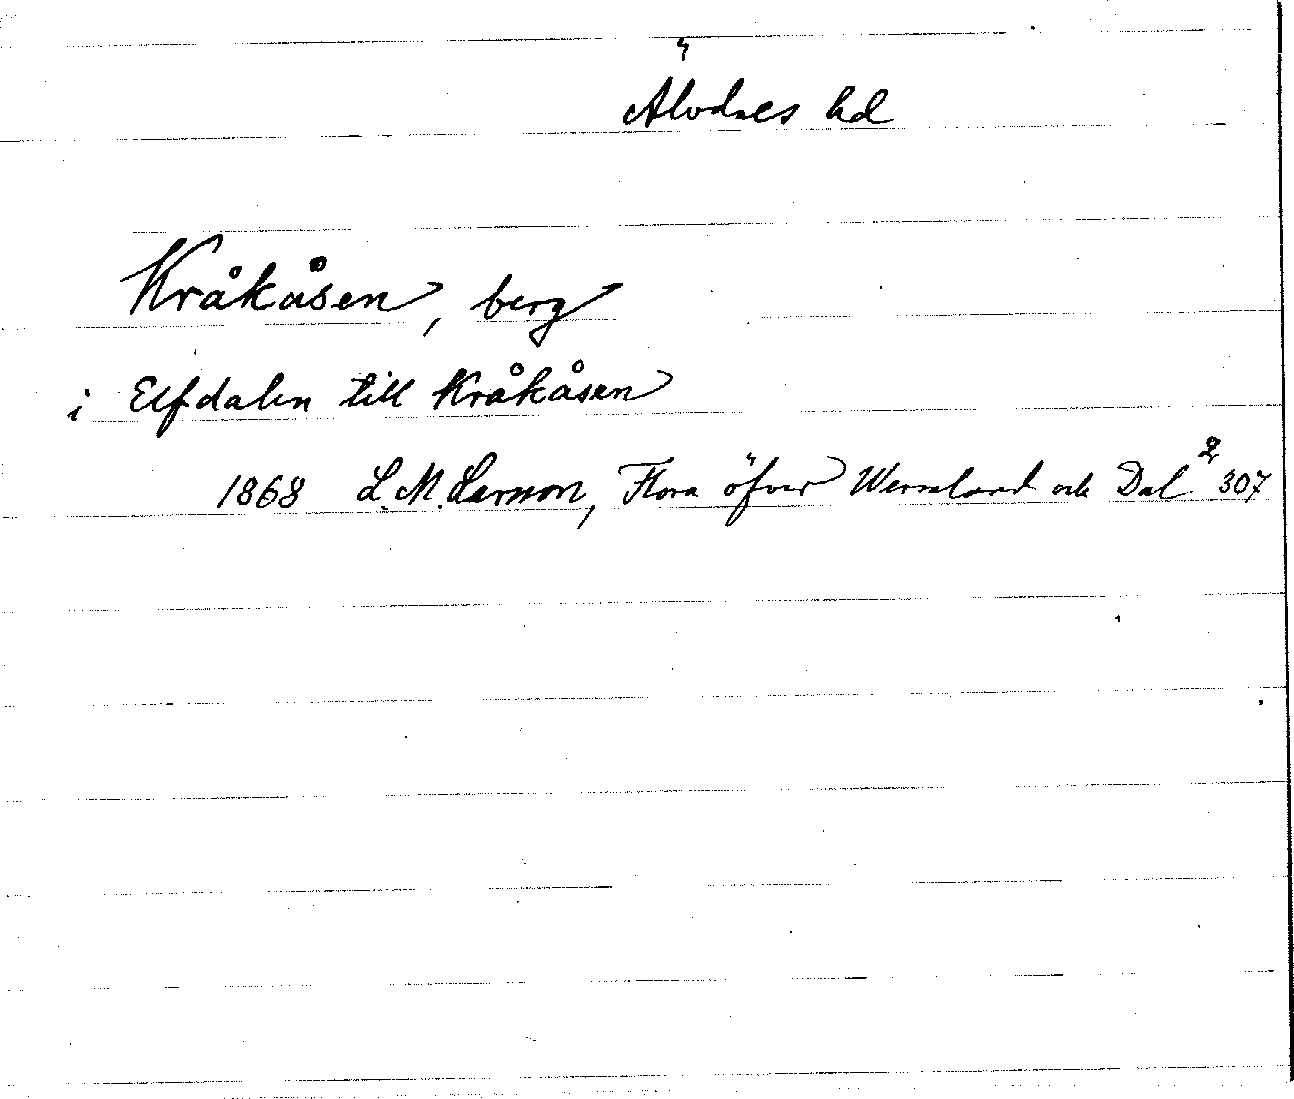 Älvdals hd
Kråkåsen, berg
i Elfdalen till Kråkåsen
1868 L. M. Larsson, Flora öfver Wermland och Dal² 307